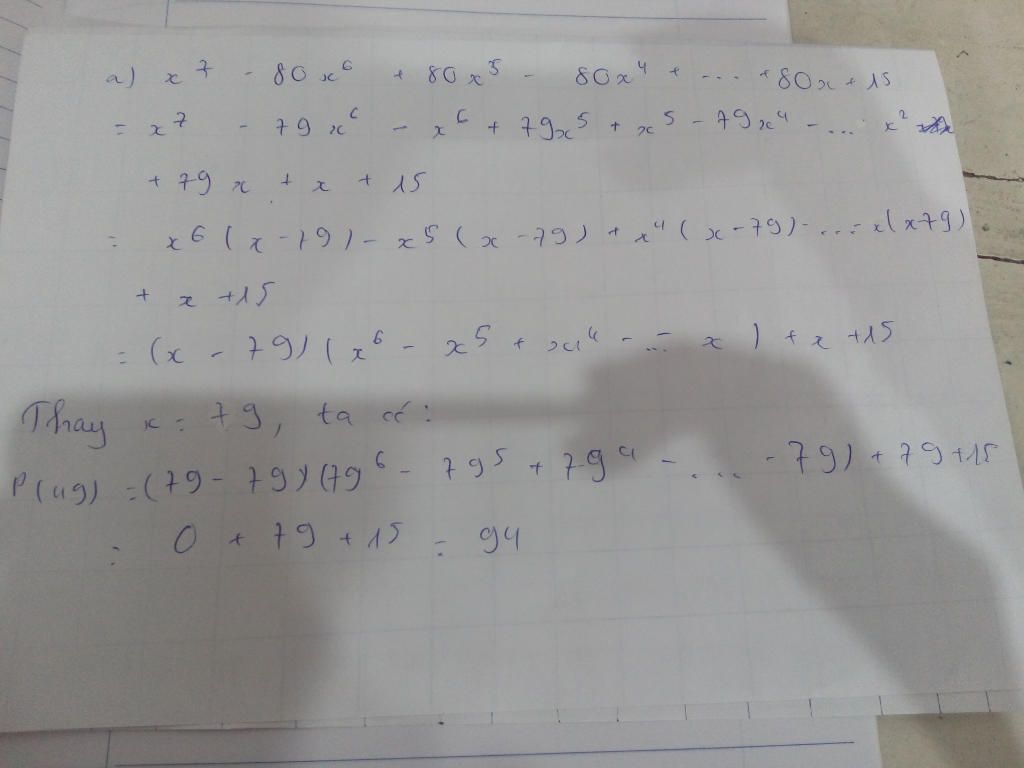 a) x⁷ - 80x⁶ + 80x⁵ - 80x⁴ + ... + 80x + 15
= x⁷ - 79x⁶ - x⁶ + 79x⁵ + x⁵ - 79x⁴ - ... x²
+ 79x + x + 15
= x⁶(x-79) - x⁵(x-79) + x⁴(x-79) - ... - x(x79)
+ x + 15
= (x - 79)(x⁶ - x⁵ + x⁴ - ... - x) + x + 15
Thay x = 79, ta có:
P(49) = (79 - 79)(79⁶ - 79⁵ + 79⁴ - .... - 79) + 79 + 15
= 0 + 79 + 15 = 94